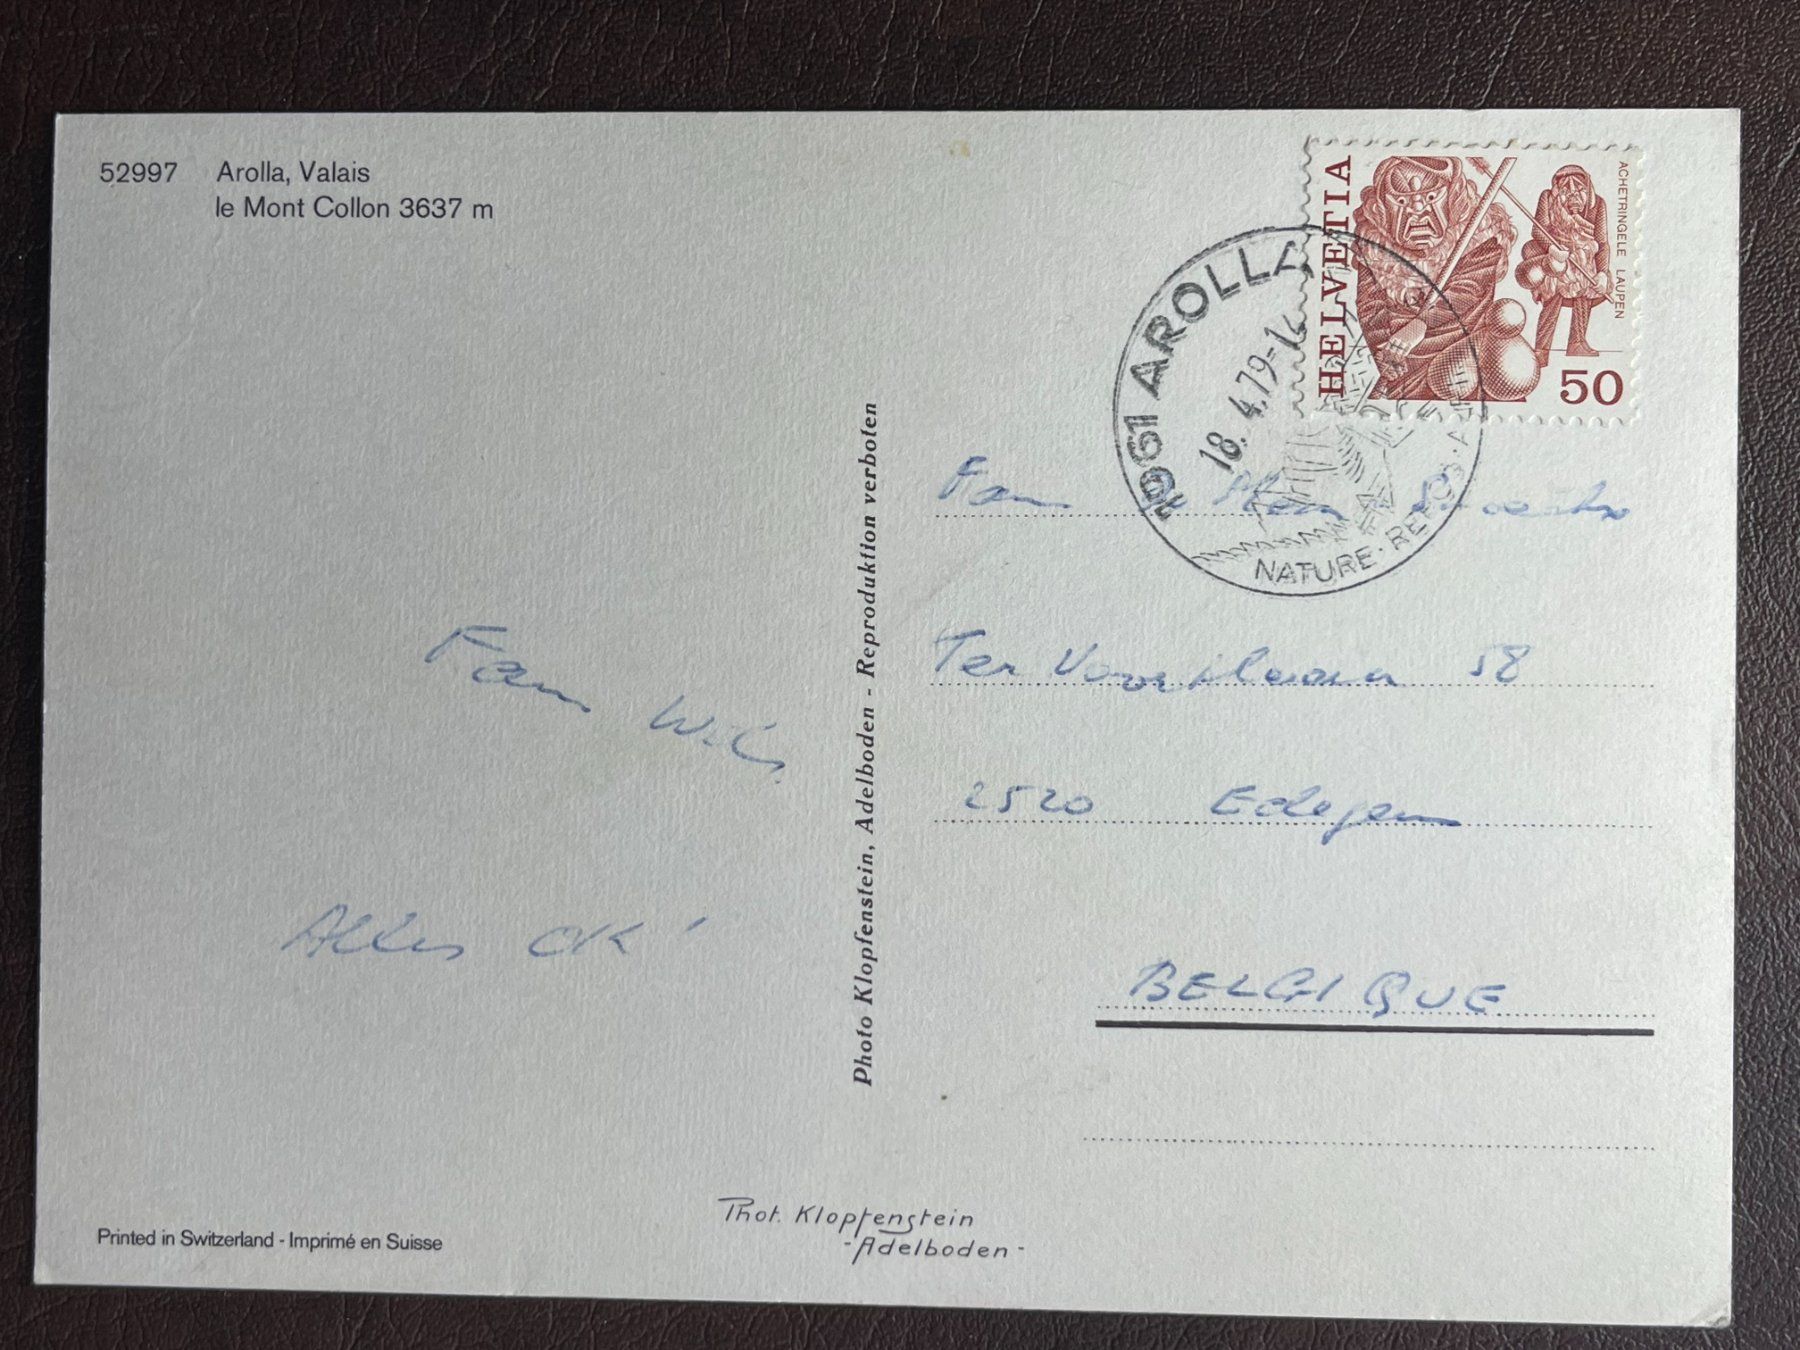 52997 Arolla, Valais
le Mont Collon 3637 m
HELVETIA
ACHETRINGELE LAUPEN
50
1961 AROLLA
18.4.79-
NATURE
Fam
Ter 58
2520 Edegem
BELGIQUE
Fam Wils
Alles OK!
Photo Klopfenstein, Adelboden - Reproduktion verboten
Phot. Klopfenstein
- Adelboden -
Printed in Switzerland - Imprimé en Suisse